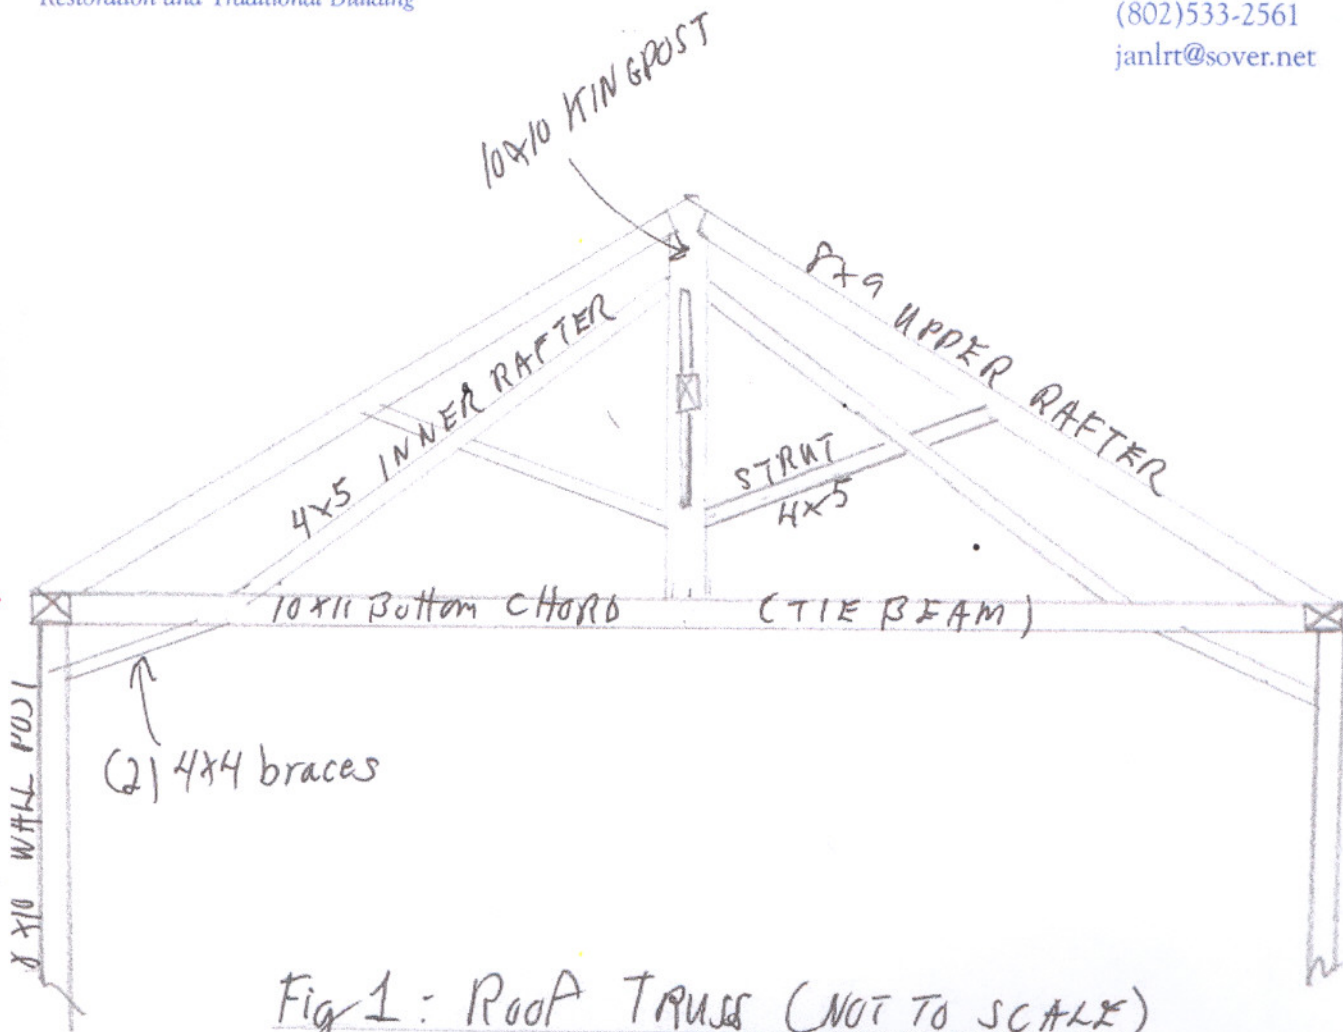 Restoration and Traditional Building
(802)533-2561
janlrt@sover.net
10x10 KINGPOST
8x9 UPPER RAFTER
4x5 INNER RAFTER
STRUT
4x5
10x11 Bottom CHORD (TIE BEAM)
(2) 4x4 braces
8x10 WALL POST
Fig 1: Roof TRUSS (NOT TO SCALE)